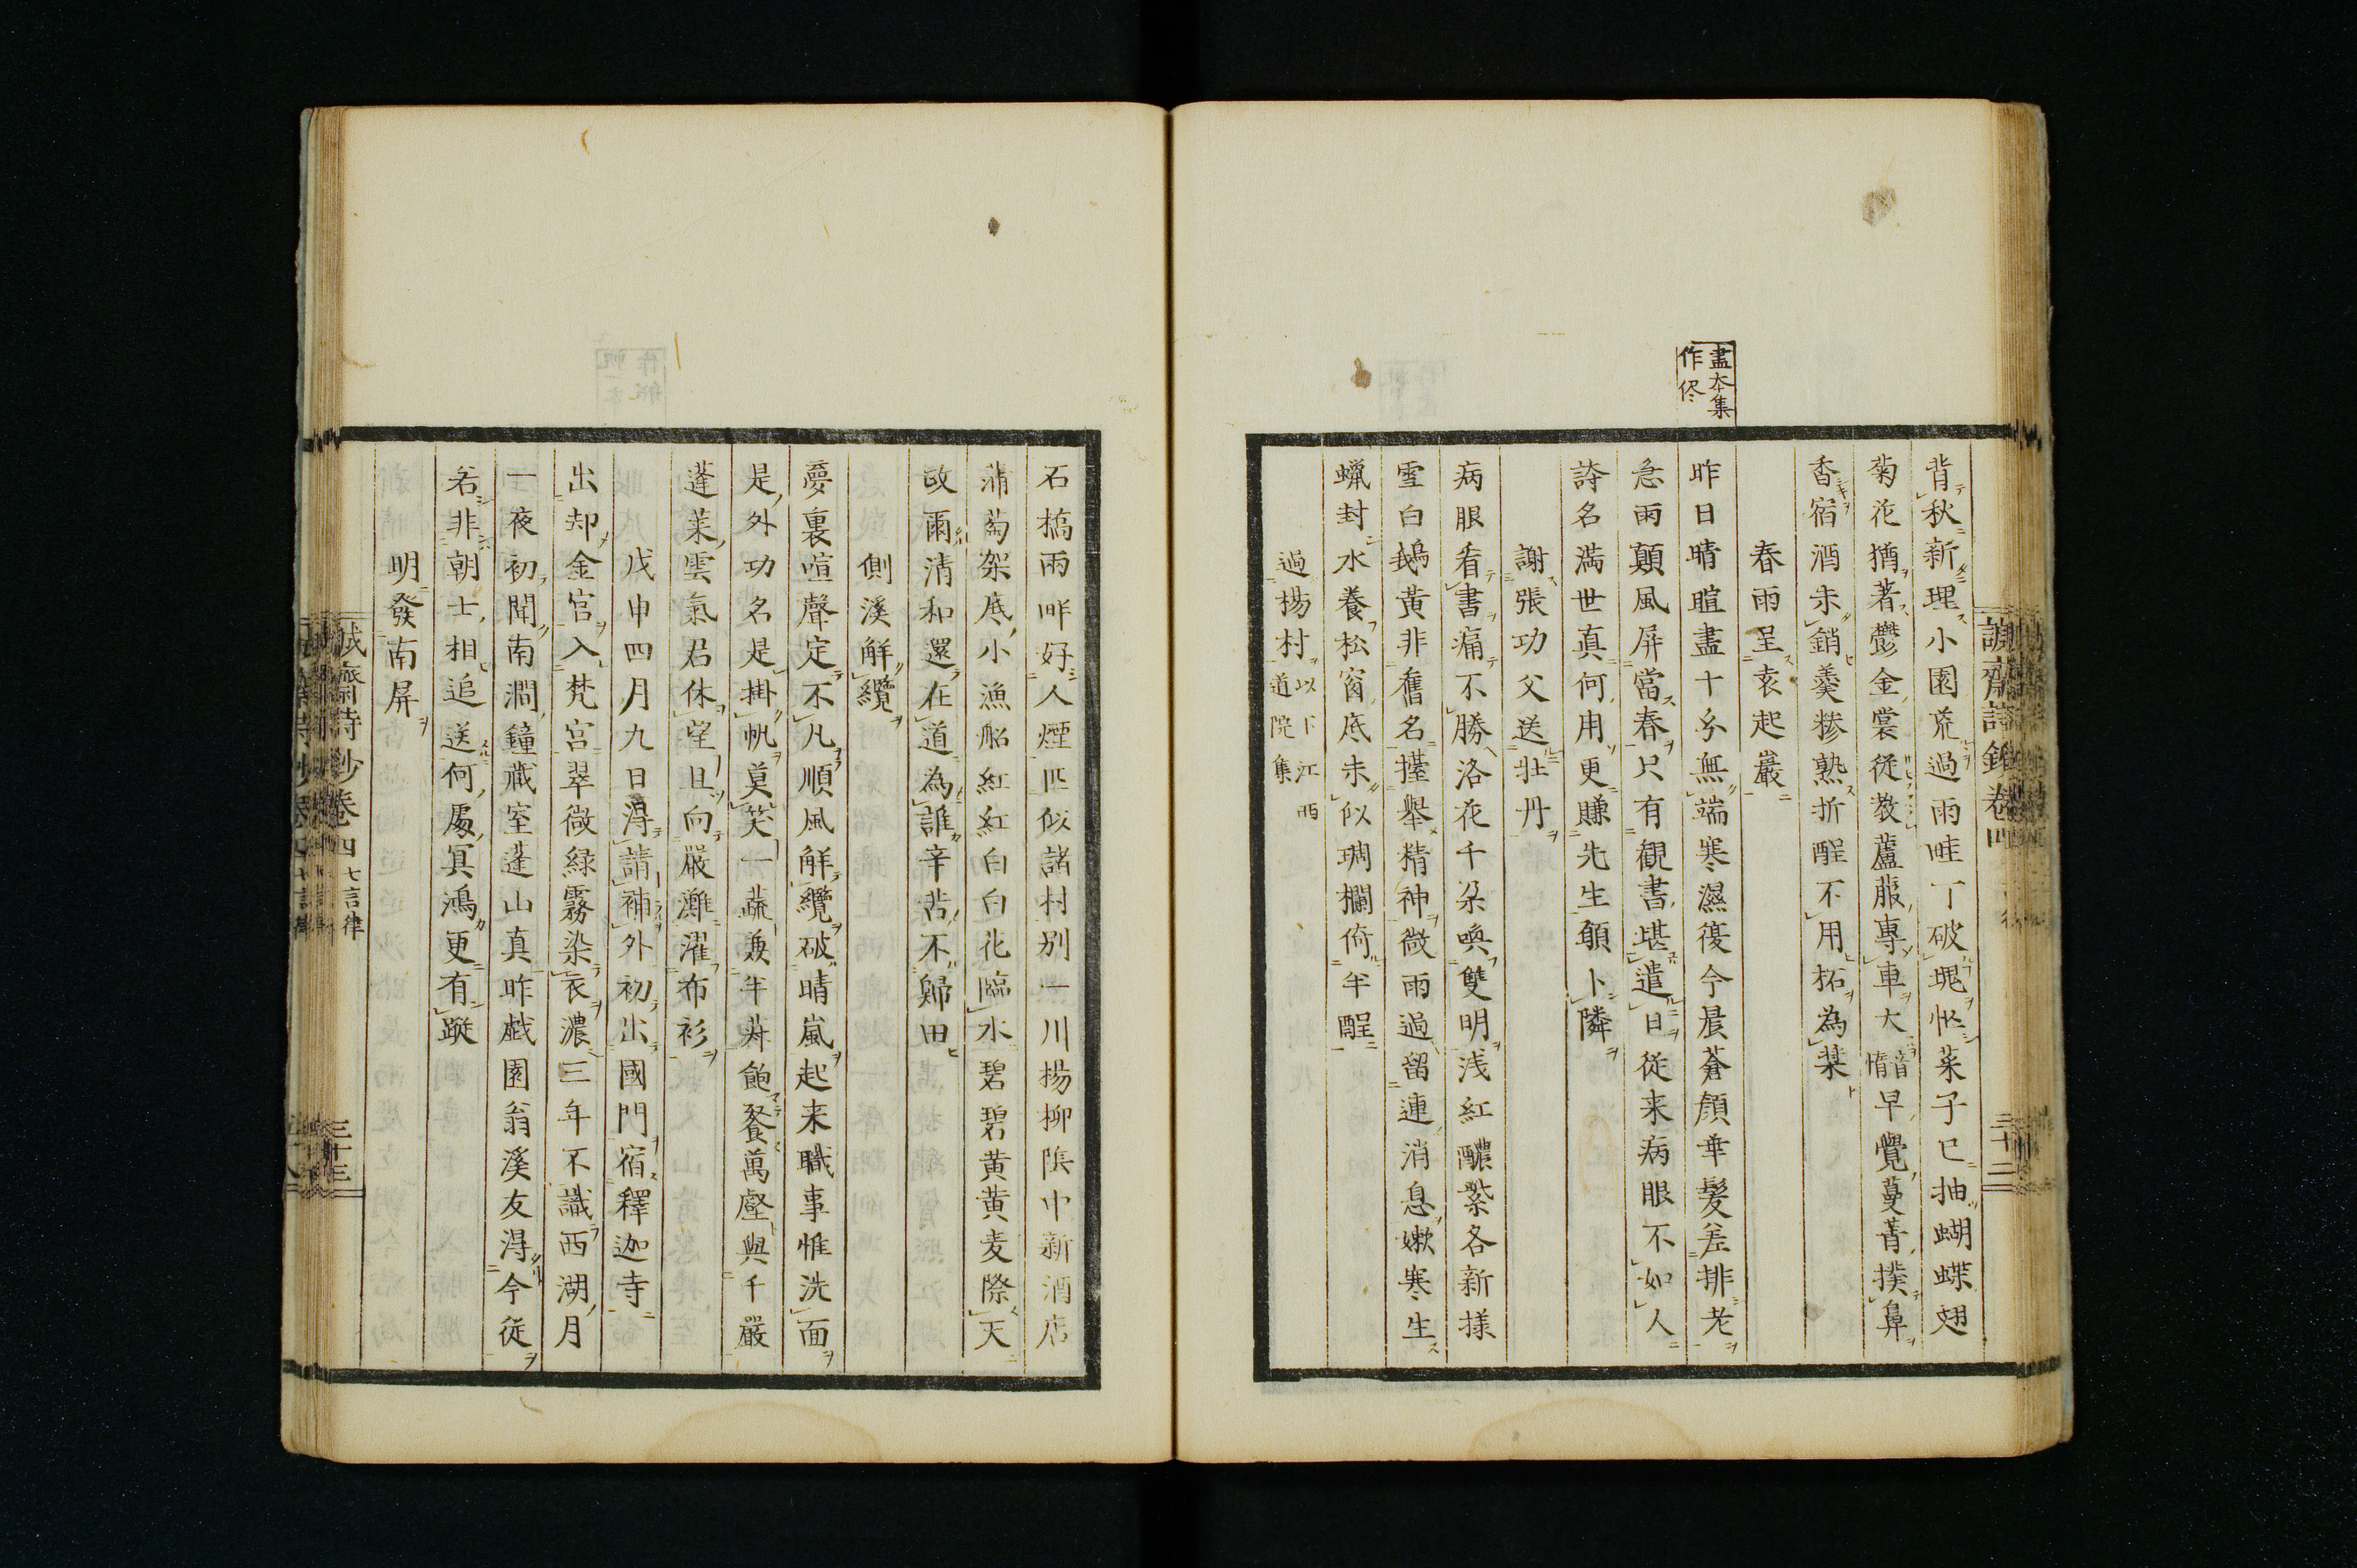 盡本集
作侭
背秋新理小園荒過雨畦丁破塊忙菜子已抽蝴蝶翅
菊花猶著鬱金裳従教蘆菔專車大音惰早覺蔓菁撲鼻
香宿酒未銷羹糝熟折酲不用柘為漿
春雨呈袁起巖
昨日晴暄盡十分無端寒濕復今晨蒼顔華髪差排老
急雨顛風屏當春只有観書堪遣日従来病眼不如人
誇名満世真何用更賺先生願卜隣
謝張功父送牡丹
病眼看書痛不勝洛花千朶喚雙明浅紅醲紫各新様
雪白鵝黄非舊名擡舉精神微雨過留連消息嫩寒生
蝋封水養松窗底未似琱欄倚半酲
過楊村以下江西道院集
石橋雨畔好人煙匹似諸村別一川楊柳陰中新酒店
蒲萄架底小漁船紅紅白白花臨水碧碧黄黄麦際天
政爾清和還在道為誰辛苦不歸田
側溪解纜
夢裏喧聲定不凡順風解纜破晴嵐起来職事惟洗面
是外功名是掛帆莫笑一蔬兼半菽飽餐萬壑與千巖
蓬莱雲氣君休望且向嚴灘濯布衫
戊申四月九日淂請補外初出國門宿釋迦寺
出却金宮入梵宮翠微緑霧染衣濃三年不識西湖月
一夜初聞南澗鐘蔵室蓬山真昨戯園翁溪友淂今従
若非朝士相追送何處冥鴻更有蹤
明發南屏
誠齋詩鈔卷四 七言律 三十三